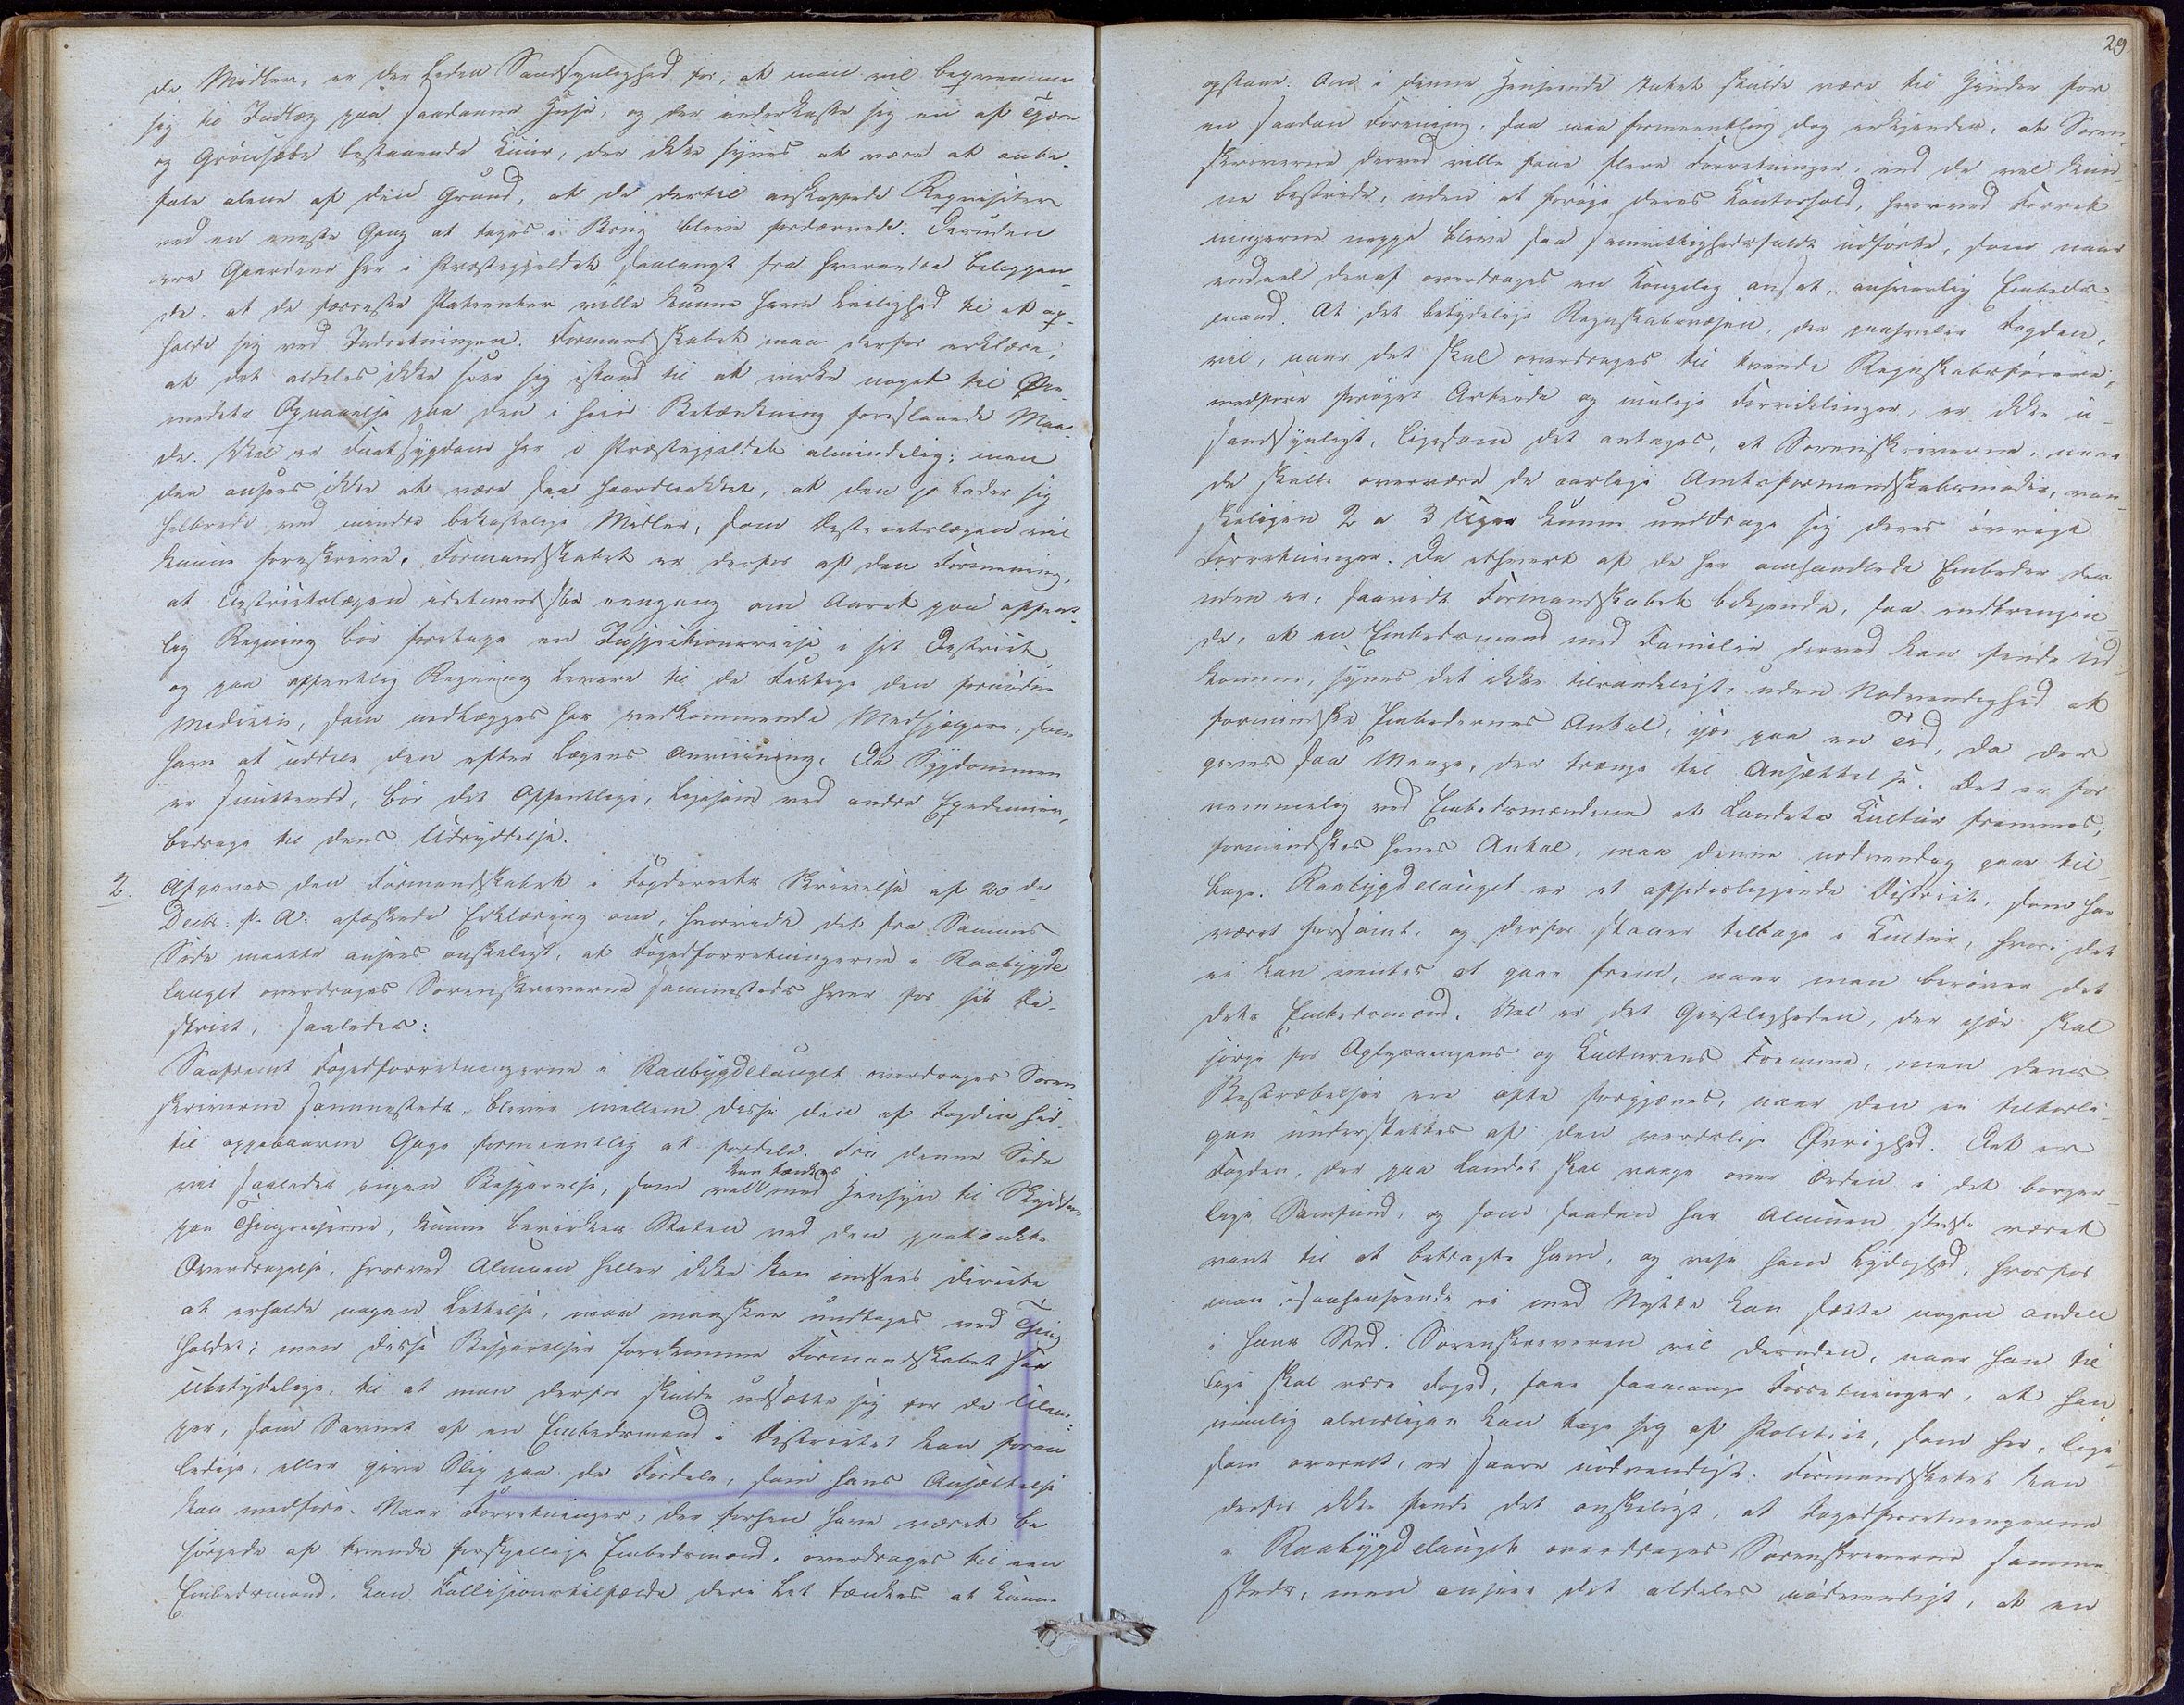 de Midler, er der liden Sandsynlighed for, at man vil beqvemme
sig til Indlæg paa saadanne Huse, og der underkaste sig en af Tjære
og Grønsæbe bestaaende Kuur, der ikke synes at være at anbe-
fale alene af den Grund, at de dertil anskaffede Reqvisiter
ved en eneste Gang at tages i Brug bleve fordærvede. Desuden
ere Gaardene her i Præstegjeldet saalangt fra hverandre beliggen-
de, at de færreste Patienter ville kunne have Leilighed til at op-
holde sig ved Indretningen. Formandskabet maa derfor erklære,
at det aldeles ikke seer sig istand til at virke noget til Øie-
medets Opnaaelse paa den i hiin Betænkning foreslaaede Maa-
de. Vel er Fnatsygdom her i Præstegjeldet almindelig; men
den ansees ikke at være saa haardnakket, at den jo lader sig
helbrede ved mindre bekostelige Midler, som Districtslægen vil
kunne foreskrive. Formandskabet er derfor af den Formening,
at Districtslægen idetmindste eengang om Aaret paa offent-
lig Regning bør foretage en Inspectionsreise i sit District,
og paa offentlig Regning levere til de Fattige den fornødne
Medicin, som nedlægges hos vedkommende Medhjælpere, som
have at uddele den efter Lægens Anviisning. Da Sygdommen
er smittende, bør det Offentlige, ligesom ved andre Epidemier,
bidrage til dens Udryddelse.
2. Afgaves den Formandskabet i Fogderiets Skrivelse af 20de
Decbr. f. A. afæskede Erklæring om, hvorvidt det fra Sammes
Side maatte ansees ønskeligt, at Fogedforretningerne i Raabygde-
lauget overdrages Sorenskriverne sammesteds hver for sit Di-
strict, saaledes:
Saafremt Fogedforretningerne i Raabygdelauget overdrages Soren-
skriverne sammesteds, blever mellem disse den af Fogden hid-
til oppebaarne Gage formeentlig at fordele. Fra denne Side
kan tænkes
vil saaledes ingen Besparelse, som vel med Hensyn til Skyds
paa Thingreiserne, kunne bevirkes Staten ved den paatænkte
Overdragelse, hvorved Almuen heller ikke kan indsees directe
at erholde nogen Lettelse, maa maaskee undtages ved Thing-
holdet; men disse Besparelser forekomme Formandskabet for
ubetydelige, til at man derfor skulde udsætte sig for de Ulem-
per, som Savnet af en Embedsmand i Districtet kan foran-
ledige, eller give Slip paa de Fordele, som hans Ansættelse
kan medføre. Naar Forretninger, der forhen have været be-
sørgede af tvende forskjellige Embedsmænd, overdrages til een
Embedsmand, kan Collisionstilfælde deri let tænkes at kunne
29
opstaae. Om i denne Henseende Intet skulde være til Hinder for
en saadan Forening, saa maa formeentlig dog erkjendes, at Soren-
skriverne derved ville faae flere Forretninger, end de vel kun-
ne bestride, uden at forøge deres Contorhold, hvorved Forret-
ningerne neppe bleve saa samvittighedsfuldt udførte, som naar
endeel deraf overdrages en kongelig ansat, ansvarlig Embeds-
mand. At det betydelige Regnskabsvæsen, der paahviler Fogden,
vil, naar det skal overdrages til tvende Regnskabsførere,
medføre forøget Arbeide og mulige Forviklinger, er ikke u-
sandsynligt, ligesom det antages, at Sorenskriverne, naar
de skulle overvære de aarlige Amtsformandskabsmøder, van-
skeligen 2 a 3 Uger kunne unddrage sig deres øvrige
Forretninger. Da ethvert af de her omhandlede Embeder des-
uden er, saavidt Formandskabet bekjendt, saa indbringen-
de, at en Embedsmand med Familie derved kan finde Ud-
komme, synes det ikke tilraadeligt, uden Nødvendighed at
formindske Embedernes Antal, især paa en Tid, da der
gives saa Mange, der trænge til Ansættelse. Det er for-
nemmelig ved Embedsmændene at Landets Kultur fremmes;
formindskes hines Antal, maa denne nødvendig gaae til-
bage. Raabygdelauget er et afsidesliggende District, som har
været forsømt, og derfor staaer tilbage i Kultur, hvori det
ei kan ventes at gaae frem, naar man berøver det
dets Embedsmænd. Vel er det Geistligheden, der især skal
sørge for Oplysningens og Culturens Fremme, men dens
Bestræbelser ere ofte forgjæves, naar den ei tilbørli-
gen understøttes af den verdslige Øvrighed. Det er
Fogden, der paa Landet skal vaage over Orden i det borger-
lige Samfund, og som saadan har Almuen stedse været
vant til at betragte ham, og vise ham Lydighed, hvorfor
man i saahenseende ei med Nytte kan sætte nogen anden
i hans Sted. Sorenskriveren vil desuden, naar han til-
lige skal være Foged, faae saamange Forretninger, at han
umulig alvorligen kan tage sig af Politiet, som her, lige-
som overalt, er saare nødvendigt. Formandskabet kan
derfor ikke finde det ønskeligt, at Fogedforretningerne
i Raabygdelauget overdrages Sorenskriverne samme-
steds, men ansees det aldeles nødvendigt, at en